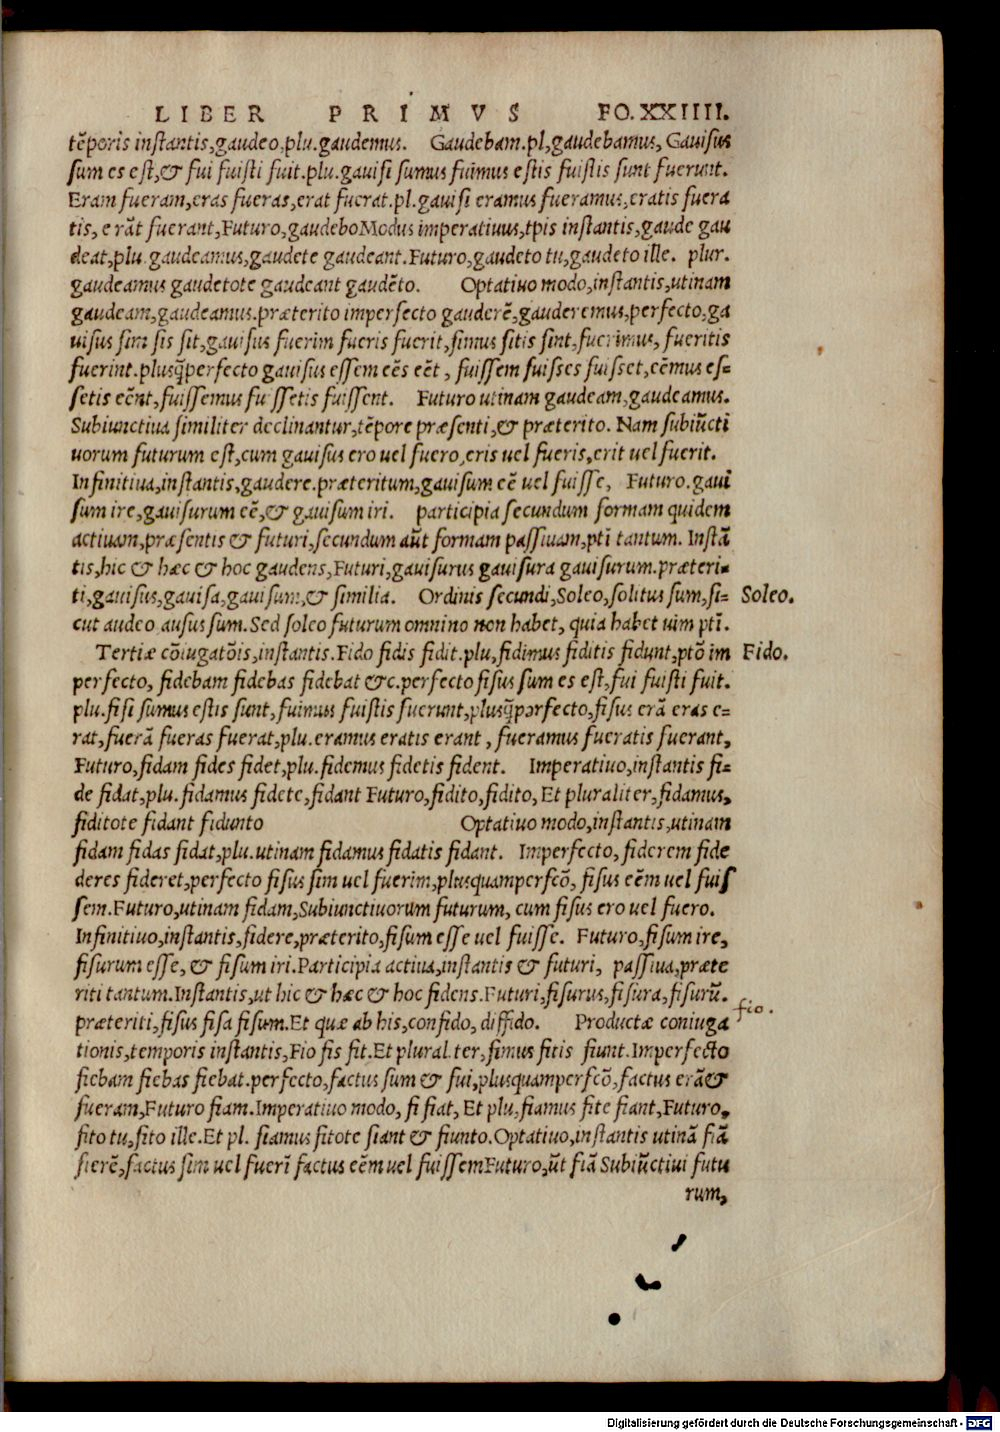 LIBER PRIMVS FO. XXIIII.
tēporis instantis,gaudeo,plu.gaudemus. Gaudebam.pl,gaudebamus, Gauisus
sum es est,& fui fuisti fuit.plu.gauisi sumus fuimus estis fuistis sunt fuerunt.
Eram fueram,eras fueras,erat fuerat.pl.gauisi eramus fueramus,eratis fuera
tis, e rāt fuerant,Futuro,gaudeboModus imperatiuus,tp̄is instantis,gaude gau
deat,plu.gaudeamus,gaudete gaudeant.Futuro,gaudeto tu,gaudeto ille. plur.
gaudeamus gaudetote gaudeant gaudēto. Optatiuo modo,instantis,utinam
gaudeam,gaudeamus.præterito imperfecto gauderē,gauderemus,perfecto,ga
uisus sim sis sit,gauisus fuerim fueris fuerit,simus sitis sint,fuerimus, fueritis
fuerint.plusq̄perfecto gauisus essem eēs eēt, fuissem fuisses fuisset,eēmus es=
setis eēnt,fuissemus fuissetis fuissent. Futuro utinam gaudeam,gaudeamus.
Subiunctiua similiter declinantur,tēpore præsenti,& præterito. Nam subiūcti
uorum futurum est,cum gauisus ero uel fuero,eris uel fueris,erit uel fuerit.
Infinitiua,instantis,gaudere.præteritum,gauisum eē uel fuisse, Futuro.gaui
sum ire,gauisurum eē,& gauisum iri. participia secundum formam quidem
actiuam,præsentis & futuri,secundum aūt formam passiuam,pt̄i tantum. Instā
tis,hic & hæc & hoc gaudens,Futuri,gauisurus gauisura gauisurum.præteri=
ti,gauisus,gauisa,gauisum,& similia. Ordinis secundi,Soleo,solitus sum,si= Soleo.
cut audeo ausus sum.Sed soleo futurum omnino non habet, quia habet uim pt̄i.
Tertiæ cōiugatōis,instantis.Fido fidis fidit.plu,fidimus fiditis fidunt,ptō im Fido.
perfecto, fidebam fidebas fidebat &c.perfecto fisus sum es est,fui fuisti fuit.
plu.fisi sumus estis sunt,fuimus fuistis fuerunt,plusq̄perfecto,fisus erā eras e=
rat,fuerā fueras fuerat,plu.eramus eratis erant, fueramus fueratis fuerant,
Futuro,fidam fides fidet,plu.fidemus fidetis fident. Imperatiuo,instantis fi=
de fidat,plu.fidamus fidete,fidant Futuro,fidito,fidito, Et pluraliter,fidamus,
fiditote fidant fidunto Optatiuo modo,instantis,utinam
fidam fidas fidat,plu.utinam fidamus fidatis fidant. Imperfecto, fiderem fide
deres fideret,perfecto fisus sim uel fuerim,plusquamperfcō, fisus eēm uel fuis
sem.Futuro,utinam fidam,Subiunctiuorum futurum, cum fisus ero uel fuero.
Infinitiuo,instantis,fidere,præterito,fisum esse uel fuisse. Futuro,fisum ire,
fisurum esse, & fisum iri.Participia actiua,instantis & futuri, passiua,præte
riti tantum.Instantis,ut hic & hæc & hoc fidens.Futuri,fisurus,fisura,fisurū.
fio.
præteriti,fisus fisa fisum.Et quæ ab his,confido, diffido. Productæ coniuga
tionis,temporis instantis,Fio fis fit.Et plural.ter,fimus fitis fiunt.Imperfecto
fiebam fiebas fiebat.perfecto,factus sum & fui,plusquamperfcō,factus erā&
fueram,Futuro fiam.Imperatiuo modo, fi fiat, Et plu,fiamus fite fiant,Futuro,
fito tu,fito ille.Et pl. fiamus fitote fiant & fiunto.Optatiuo,instantis utinā fiā
fierē,factus sim uel fuerī factus eēm uel fuissemFuturo,ūt fiā Subiūctiui futu
rum,
Digitalisierung gefördert durch die Deutsche Forschungsgemeinschaft - DFG